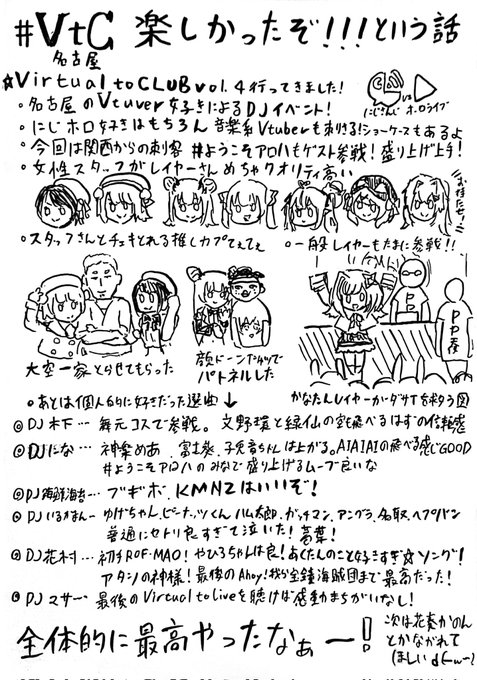 #VtC 楽しかったぞ!!!という話
名古屋
☆Virtual to CLUB vol.4 行ってきました!
にじさんじ vs ホロライブ
・名古屋のVtuver好きによるDJイベント!
・にじホロ好きはもちろん音楽系Vtuberも刺さる!ショーケースもあるよ
・今回は関西からの刺客 #ようこそアロハもゲスト参戦!盛り上げ上手!
・女性スタッフがレイヤーさんめちゃクオリティ高い
・スタッフさんとチェキとれる推しカプてぇてぇ
・一般レイヤーもたまに参戦!!
大空一家とらせてもらった
パトネルした
PP
かなたんレイヤーがダサTを求める図
・あとは個人的に好きだった選曲↓
◎DJ木下…舞元コスで参戦。文野環と緑仙の空も飛べるはずの信頼感
◎DJにな…神楽めあ、富士葵、子兎音ちゃんは上がる。AIAIAIの飛べる感じGOOD
#ようこそアロハのみなで盛り上げるムーブ良いな
◎DJ海鮮海苔…ブギボ、KMNZはいいぞ!
◎DJいるかまん…ゆげちゃん、ピーナッツくん、ハム太郎、ガッチマン、アングラ、名取、ヘブンバン
普通にセトリ良すぎて泣いた!
◎DJ花村…初手ROF-MAO!やひろちゃんは良!あくたんのこと好きすぎ☆ソング!
アタシの神様!最後のAhoy!我ら宝鐘海賊団まで最高だった!
◎DJマサー…最後のVirtual to Liveを聴けば感動まちがいなし!
全体的に最高やったなぁー!
次は花奏かのん
とかながれて
ほしい